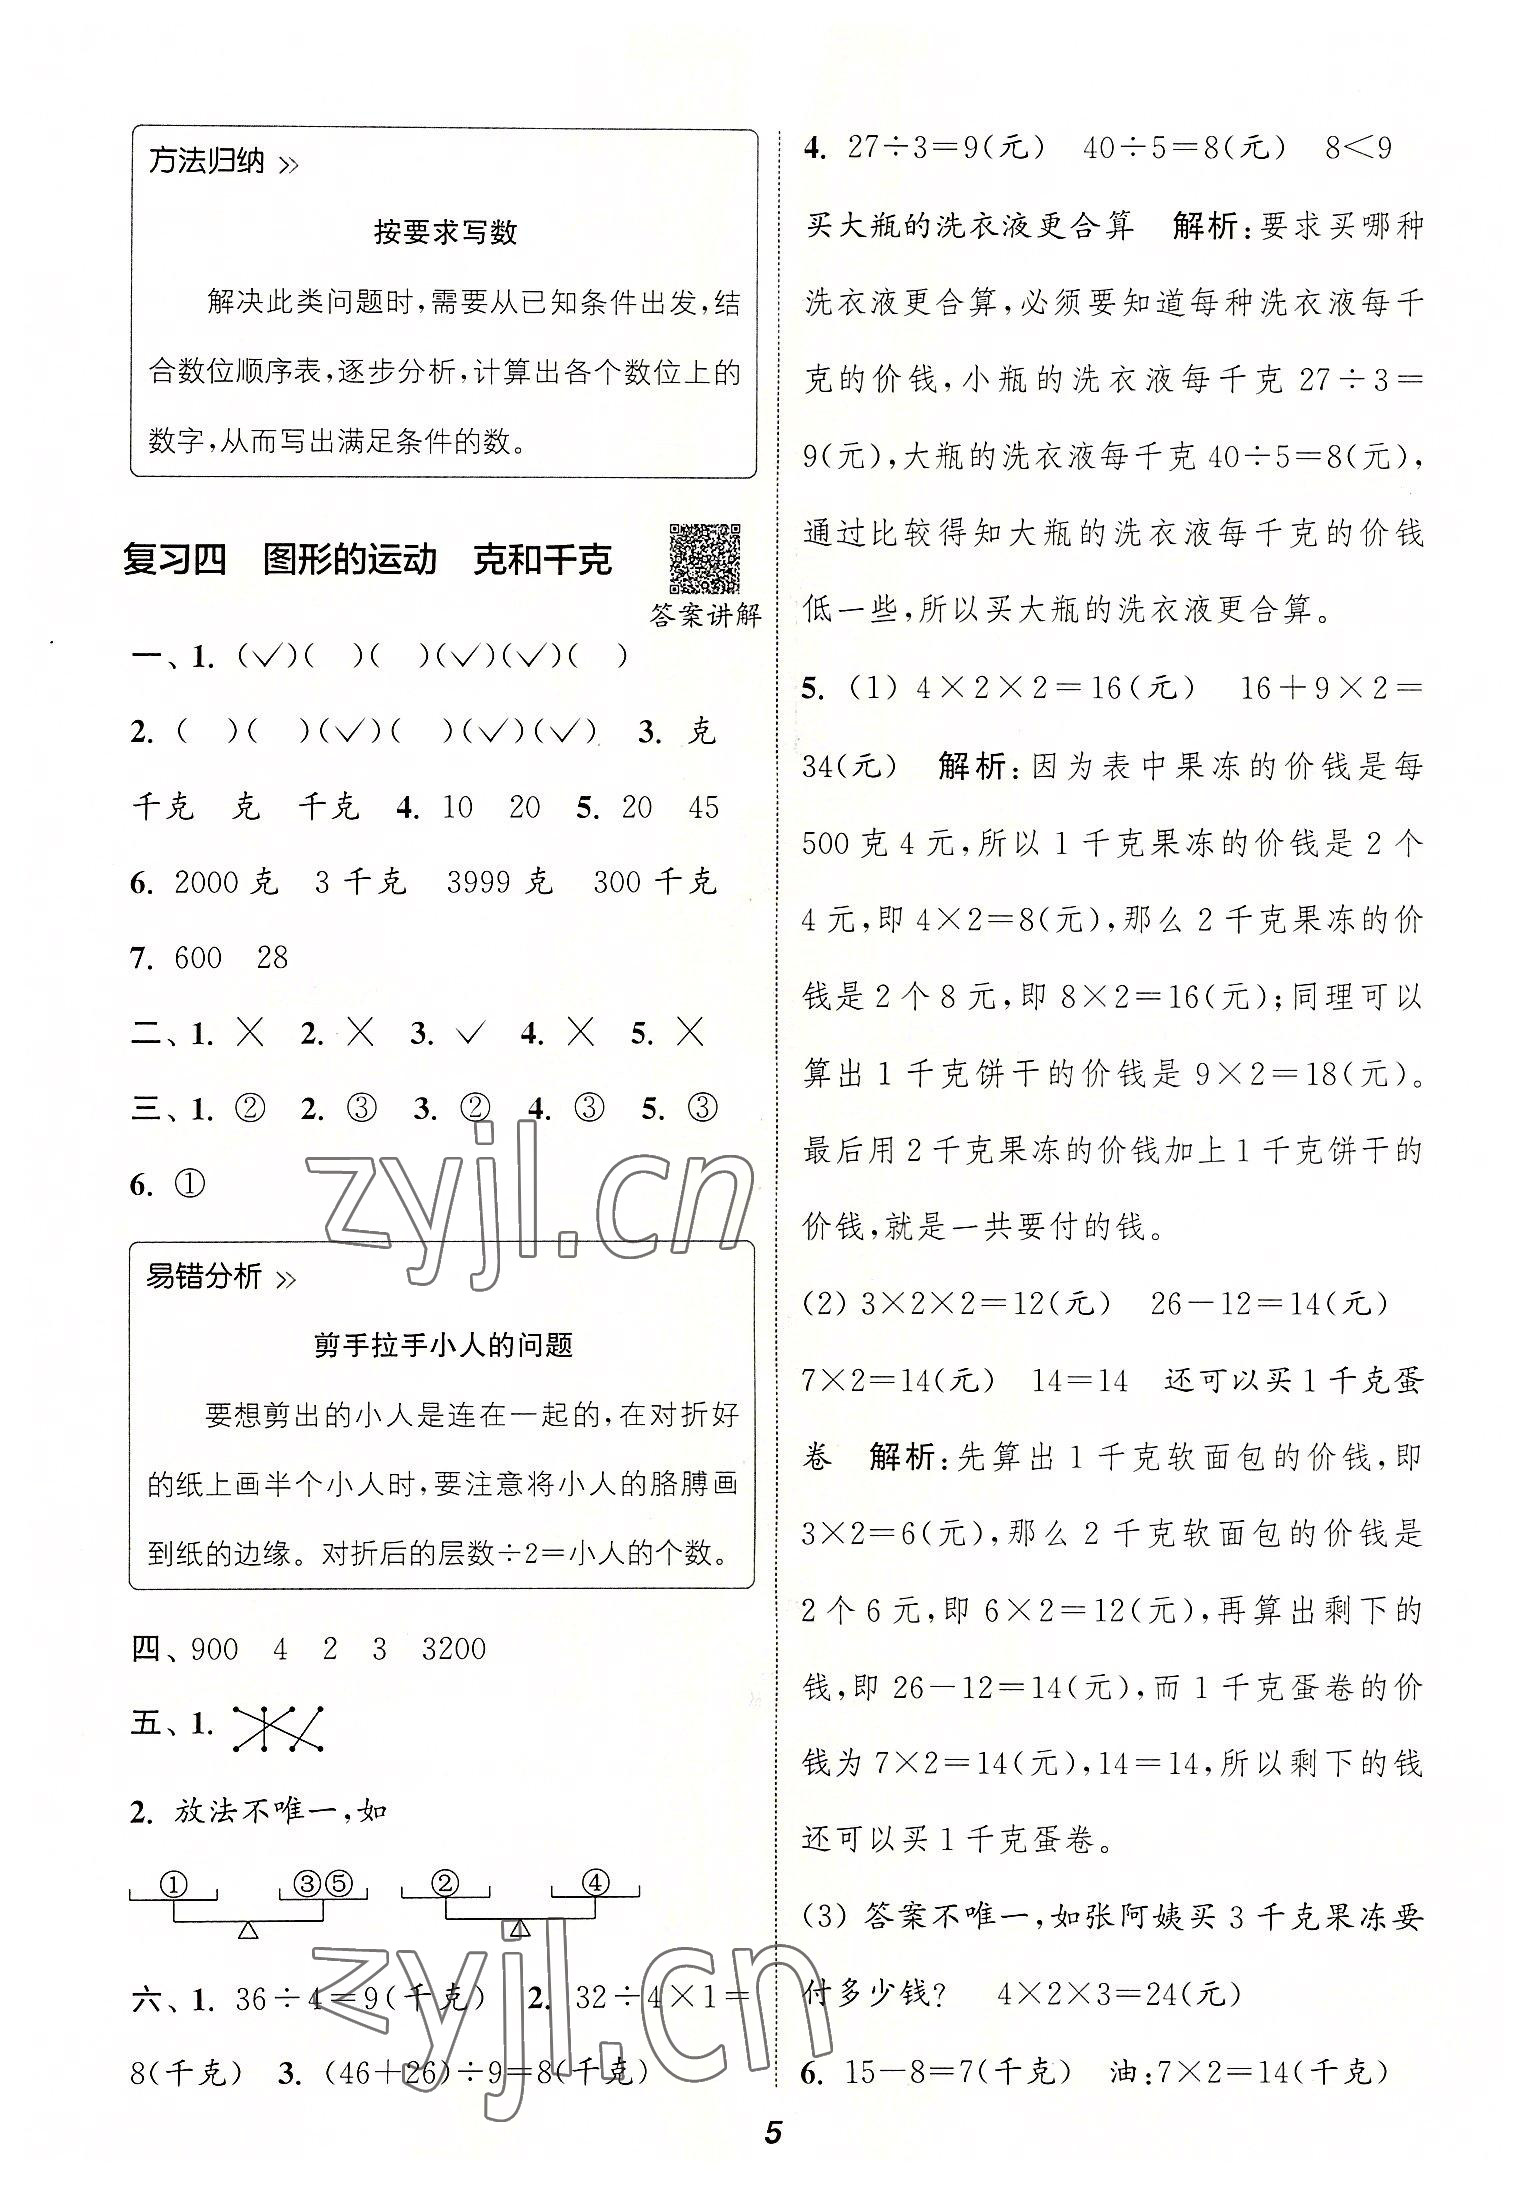 方法归纳 >>
按要求写数
解决此类问题时,需要从已知条件出发,结
合数位顺序表,逐步分析,计算出各个数位上的
数字,从而写出满足条件的数。
复习四 图形的运动 克和千克
答案讲解
一、1. (✓)( )( )(✓)(✓)( )
2. ( )( )(✓)( )(✓)(✓) 3. 克
千克 克 千克 4. 10 20 5. 20 45
6. 2000克 3千克 3999克 300千克
7. 600 28
二、1. × 2. × 3. ✓ 4. × 5. ×
三、1. ② 2. ③ 3. ② 4. ③ 5. ③
6. ①
易错分析 >>
剪手拉手小人的问题
要想剪出的小人是连在一起的,在对折好
的纸上画半个小人时,要注意将小人的胳膊画
到纸的边缘。对折后的层数÷2=小人的个数。
四、900 4 2 3 3200
五、1.
2. 放法不唯一,如
① ③⑤ ② ④
六、1. 36÷4=9(千克) 2. 32÷4×1=
8(千克) 3. (46+26)÷9=8(千克)
4. 27÷3=9(元) 40÷5=8(元) 8<9
买大瓶的洗衣液更合算 解析:要求买哪种
洗衣液更合算,必须要知道每种洗衣液每千
克的价钱,小瓶的洗衣液每千克27÷3=
9(元),大瓶的洗衣液每千克40÷5=8(元),
通过比较得知大瓶的洗衣液每千克的价钱
低一些,所以买大瓶的洗衣液更合算。
5. (1) 4×2×2=16(元) 16+9×2=
34(元) 解析:因为表中果冻的价钱是每
500克4元,所以1千克果冻的价钱是2个
4元,即4×2=8(元),那么2千克果冻的价
钱是2个8元,即8×2=16(元);同理可以
算出1千克饼干的价钱是9×2=18(元)。
最后用2千克果冻的价钱加上1千克饼干的
价钱,就是一共要付的钱。
(2) 3×2×2=12(元) 26-12=14(元)
7×2=14(元) 14=14 还可以买1千克蛋
卷 解析:先算出1千克软面包的价钱,即
3×2=6(元),那么2千克软面包的价钱是
2个6元,即6×2=12(元),再算出剩下的
钱,即26-12=14(元),而1千克蛋卷的价
钱为7×2=14(元),14=14,所以剩下的钱
还可以买1千克蛋卷。
(3) 答案不唯一,如张阿姨买3千克果冻要
付多少钱? 4×2×3=24(元)
6. 15-8=7(千克) 油:7×2=14(千克)
5
zyjl.cn
zyjl.cn